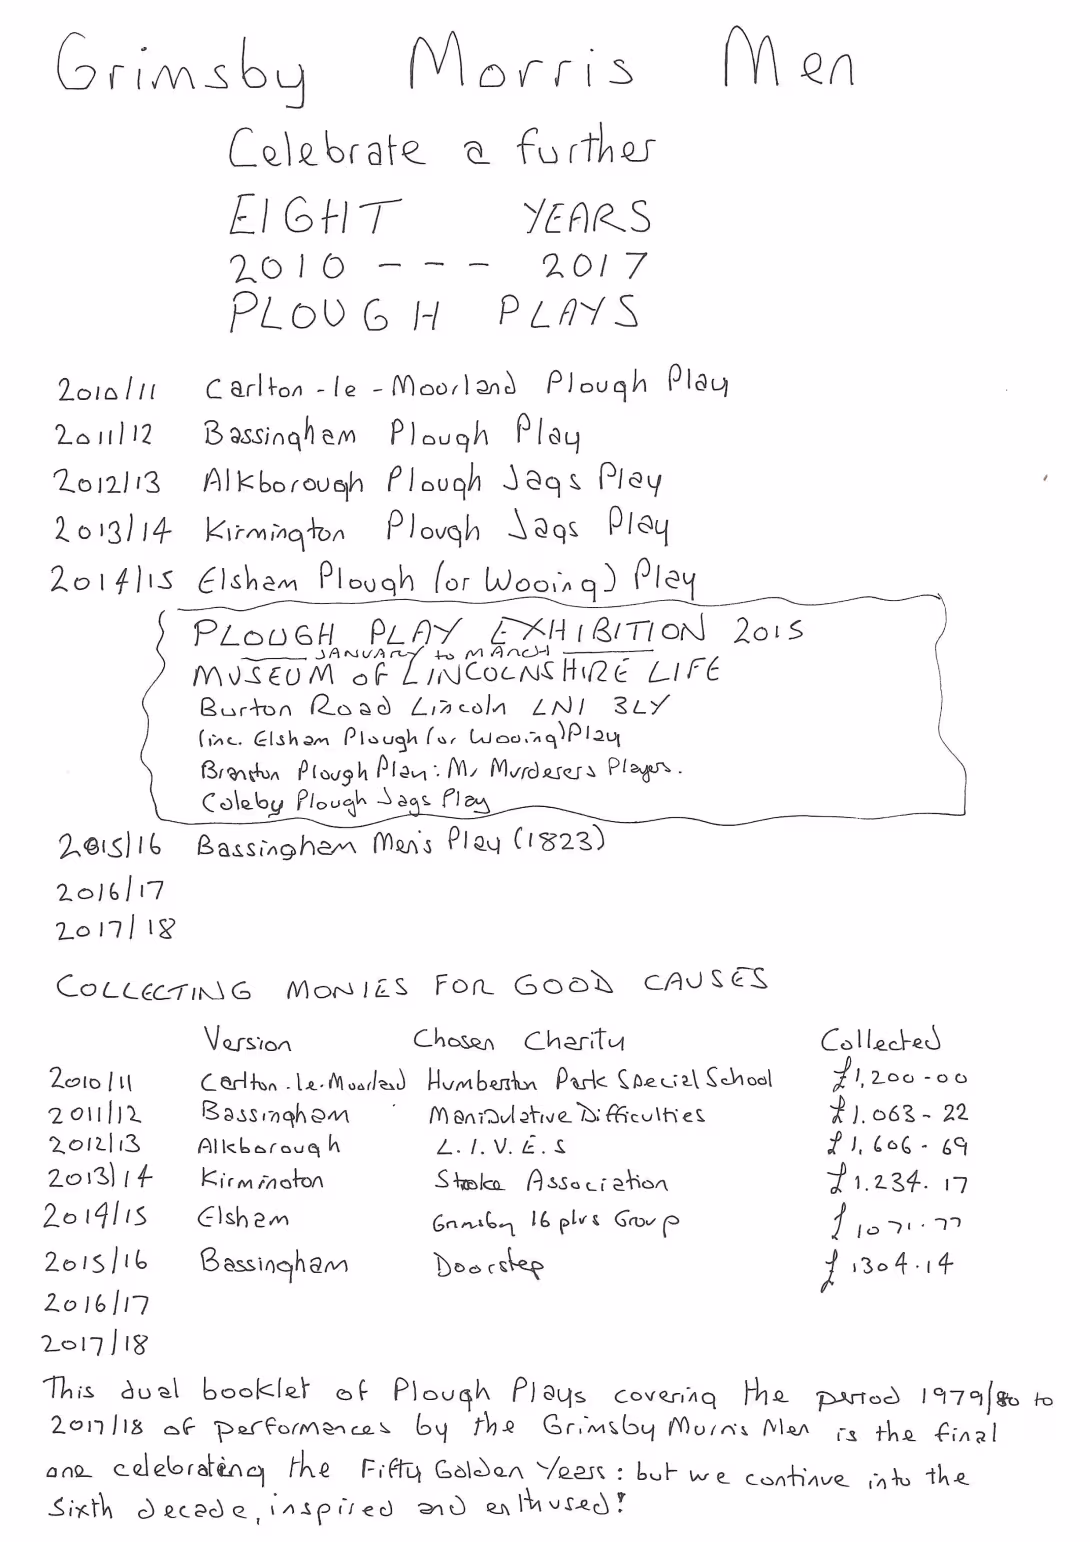 Grimsby Morris Men
Celebrate a further
EIGHT YEARS
2010 - - - 2017
PLOUGH PLAYS
2010/11 Carlton-le-Moorland Plough Play
2011/12 Bassingham Plough Play
2012/13 Alkborough Plough Jags Play
2013/14 Kirmington Plough Jags Play
2014/15 Elsham Plough (or Wooing) Play
PLOUGH PLAY EXHIBITION 2015
JANUARY to MARCH
MUSEUM OF LINCOLNSHIRE LIFE
Burton Road Lincoln LN1 3LY
(inc. Elsham Plough (or Wooing) Play
Branston Plough Play: Mr Murderers Players.
Coleby Plough Jags Play
2015/16 Bassingham Men's Play (1823)
2016/17
2017/18
COLLECTING MONIES FOR GOOD CAUSES
Version Chosen Charity Collected
2010/11 Carlton.le.Moorland Humberston Park Special School £1,200-00
2011/12 Bassingham Manipulative Difficulties £1.063-22
2012/13 Alkborough L.I.V.E.S £1,606-69
2013/14 Kirmington Stroke Association £1.234.17
2014/15 Elsham Grimsby 16 plus Group £1071.77
2015/16 Bassingham Doorstep £1304.14
2016/17
2017/18
This dual booklet of Plough Plays covering the period 1979/80 to
2017/18 of performances by the Grimsby Morris Men is the final
one celebrating the Fifty Golden Years: but we continue into the
Sixth decade, inspired and enthused!